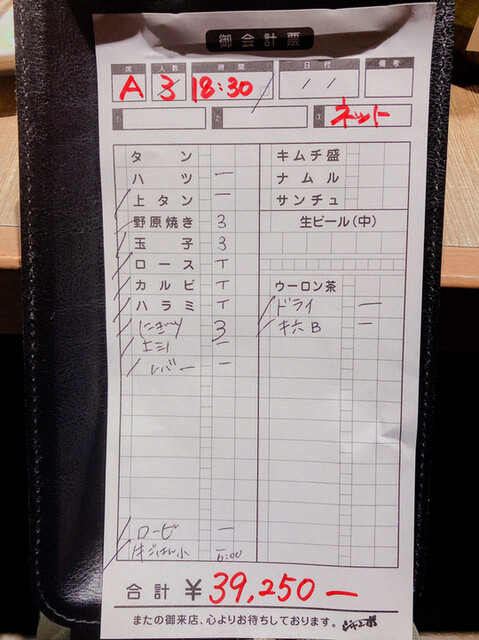 御会計票
席 人数 時間 日付 備考
A 3 18:30 / /
① ② ③ ネット
タン
ハツ 一
上タン 一
野原焼き 3
玉子 3
ロース T
カルビ T
ハラミ T
にぎり 3
ミノ 一
レバー 一
ロービ 一
牛ごはん小 一
6:00
キムチ盛
ナムル
サンチュ
生ビール(中)
ウーロン茶
ドライ 一
B 一
合計 ¥39,250ー
またの御来店、心よりお待ちしております。